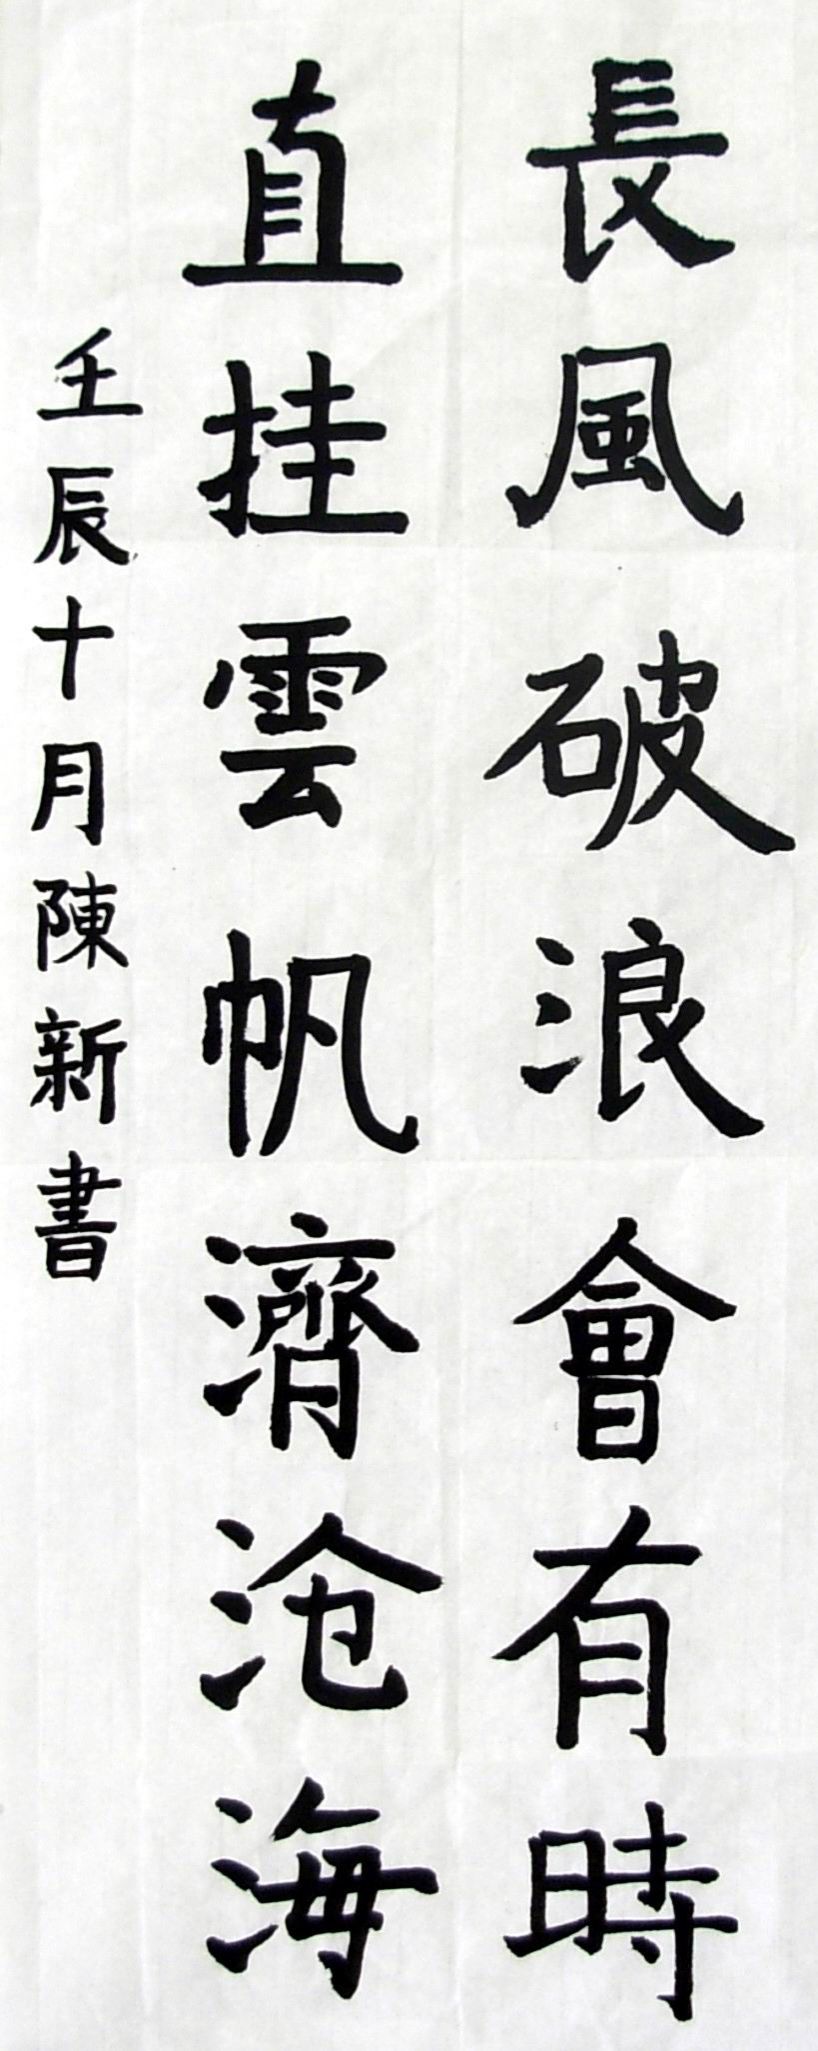 長風破浪會有時
直挂雲帆濟沧海
壬辰十月陳新書